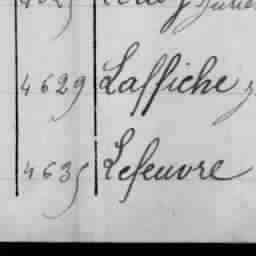 4629 Laffiche
4635 Lefeuvre